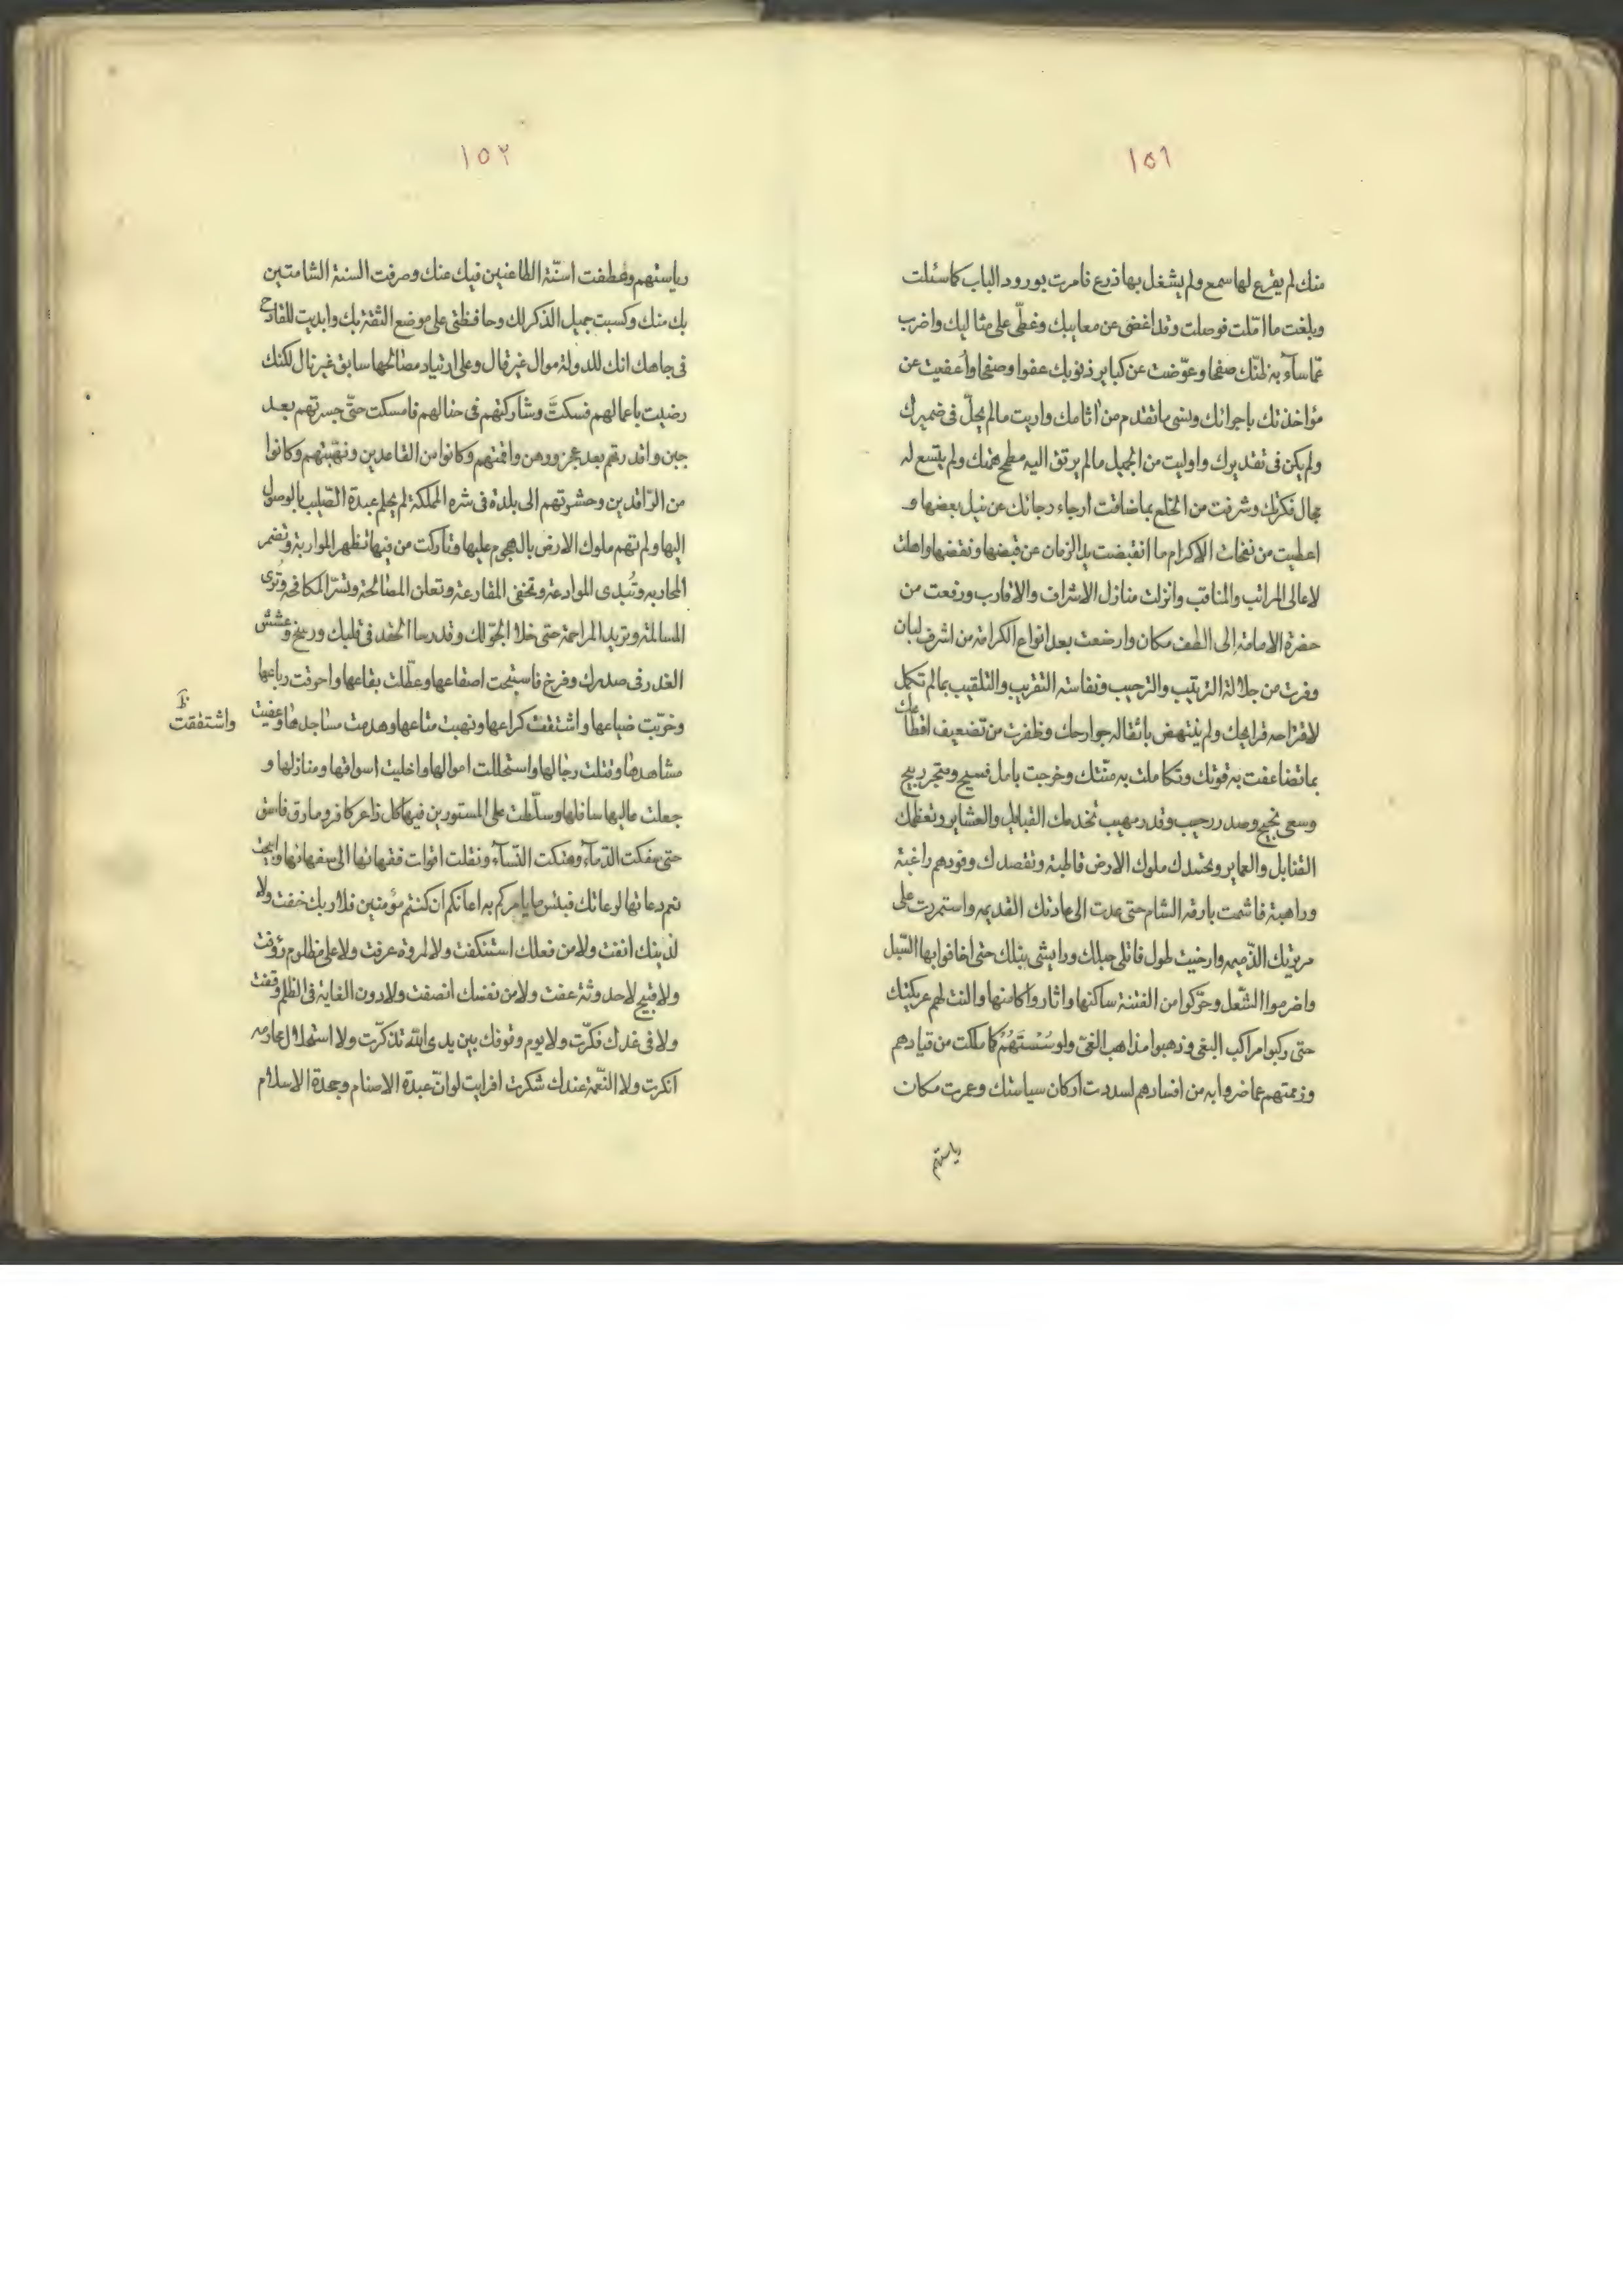 ١٥١
منك لم يقرع لها سمع ولم يشغل بها ذرع فامرت بورود الباب كما سئلت
وبلغت ما امّلت فوصلت وقد اغضى عن معايبك وغطّى على مثالبك واضرب
عمّا سآء به ظنّك صفحا وعوّضت عن كباير ذنوبك عفوا وصفحا واُعفيت عن
مؤاخذتك باجرامك ونسى ما تقدم من اثامك واريت مالم يجلّ فى ضميرك
ولم يكن فى تقديرك واوليت من الجميل مالم يرتق اليه مطمح همّتك ولم يتسع له
مجال فكرتك وشرفت من الخلع بما ضاقت ارجاء رجائك عن نيل بعضها و
اعطيت من نفحات الاكرام ما انقبضت يد الزمان عن قبضها ونقضها واهلت
لاعالى المراتب والمناقب وانزلت منازل الاشراف والاقارب ورفعت من
حضرة الامامة الى الطف مكان وارضعت بعد انواع الكرامة من اشرف لبان
وفزت من جلالة الترتيب والترحيب ونفاسة التقريب والتلقيب بمالم تكمل
لاقتراحه قرايحك ولم ينتهض باثقاله جوارحك وظفرت من تضعيف اقطاعك
بما تضاعفت به قوتك وتكاملت به منّتك وخرجت بامل فسيح ومتجر ربيح
وسعى نجيح وصدر رحيب وقدر مهيب تخدمك القبايل والعشاير وتعظمك
القنابل والعماير وتحتدك ملوك الارض قاطبة وتقصدك وفودهم راغبة
وراهبة فاشمت بارقه الشام حتى عدت الى عادتك القديمه واستمررت على
مرتوبك الذّميمه وارخيت طول قاتلى حبلك ورايشى نبلك حتى اخافوا بها السّبل
واضرموا الشّعل وحرّكوا من الفتنة ساكنها واثاروا كامنها والنت لهم عريكتك
حتى ركبوا مراكب البغى وذهبوا مذاهب الغىّ ولو سُسْتَهُمْ كما ملكت من قيادهم
وزعمتهم عما ضروا به من افسادهم لسددت اركان سياستك وعمرت مكان
رياستهم
١٥٢
رياستهم وعطفت اسنّة الطاعنين فيك عنك وصرفت السنة الشامتين
بك منك وكسبت جميل الذكر لك وحافظتى على موضع الثقة بك وابديت للقادح
فى جاهك انك للدولة موال غير قال وعلى ارتياد مصالحها سابق غير تال لكنك
رضيت باعمالهم فسكتَّ وشاركتهم فى حنالهم فامسكت حتّى جسرتهم بعد
جبن واقدرتهم بعد عجز ووهن واقمتهم وكانوا من القاعدين ونبّهتهم وكانوا
من الرّاقدين وحشوتهم الى بلدة فى شره المملكة لم يحلم عبدة الصّليب بالوصول
اليها ولم تهم ملوك الارض بالهجوم عليها وتاركت من فيها تظهر المواربة وتضمر
المحاربه وتُبدى الموادعة وتخفى المقارعة وتعلن المصالحة وتسرّ المكافحة وتُرى
المسالمة وتريد المراحمة حتى خلا الجوّ لك وقد رسا الحقد فى قلبك ورسخ وعشش
الغدر فى صدرك وفرخ فاستبحت اصقاعها وعطّلت بقاعها واحرقت رباعها
وخرّبت ضياعها واشتففت كراعها ونهبت متاعها وهدمت مساجدها وعفيت
واشتفقت
مشاهدها وقتلت رجالها واستحللت اموالها واخليت اسواقها ومنازلها و
جعلت عاليها سافلها وسلّطت على المستورين فيها كل ذاعر كافر ومارق فاسق
حتى سفكت الدّمآء وهتكت النّسآء ونقلت اقوات فقهائها الى سفهائها وابحت
نعم دعاتها لوعاتك فبئس ما يامركم به ايمانكم ان كنتم مؤمنين فلا ربك خفت ولا
لدينك انفت ولا من فعلك استنكفت ولا لمروة عرفت ولا على مظلوم رؤفت
ولا قبيح لاحدوثة عفت ولا من نفسك انصفت ولا دون الغاية فى الظلم وقفت
ولا فى غدك فكّرت ولا يوم وقوفك بين يدى الله تذكّرت ولا استحلال محارمه
انكرت ولا النّعمة عندك شكرت افرايت لو انّ عبدة الاصنام وجحدة الاسلام